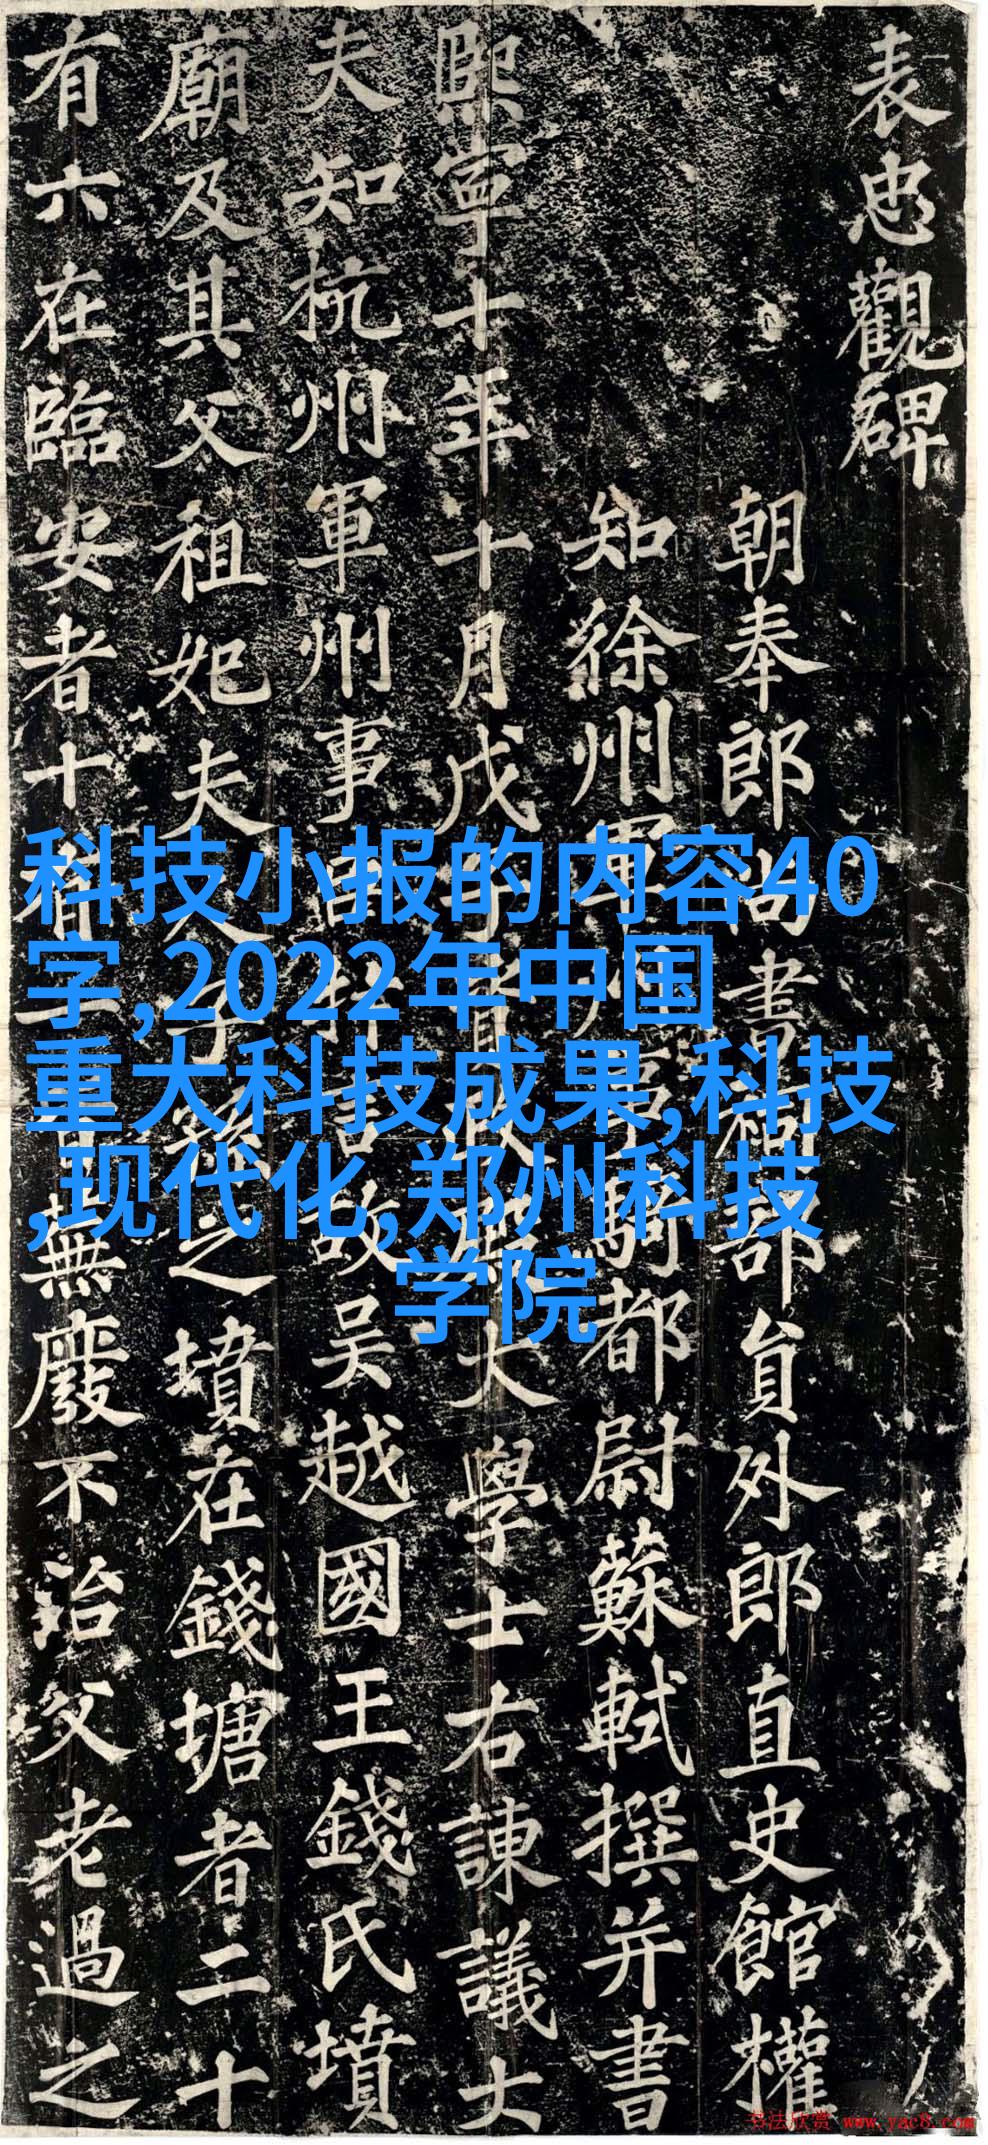 表忠觀碑
朝奉郎尚書祠部員外郎直史館權
知徐州軍州事騎都尉蘇軾撰并書
熙寧十年十月戊子資政殿大學士右諫議大
夫知杭州軍州事臣抃言故吳越國王錢氏墳
廟及其父祖妃夫人子孫之墳在錢塘者二十
有六在臨安者十有一皆蕪廢不治父老過之
科技小报的内容40
字,2022年中国
重大科技成果,科技
,现代化,郑州科技
学院
书法欣赏 www.yac8.com